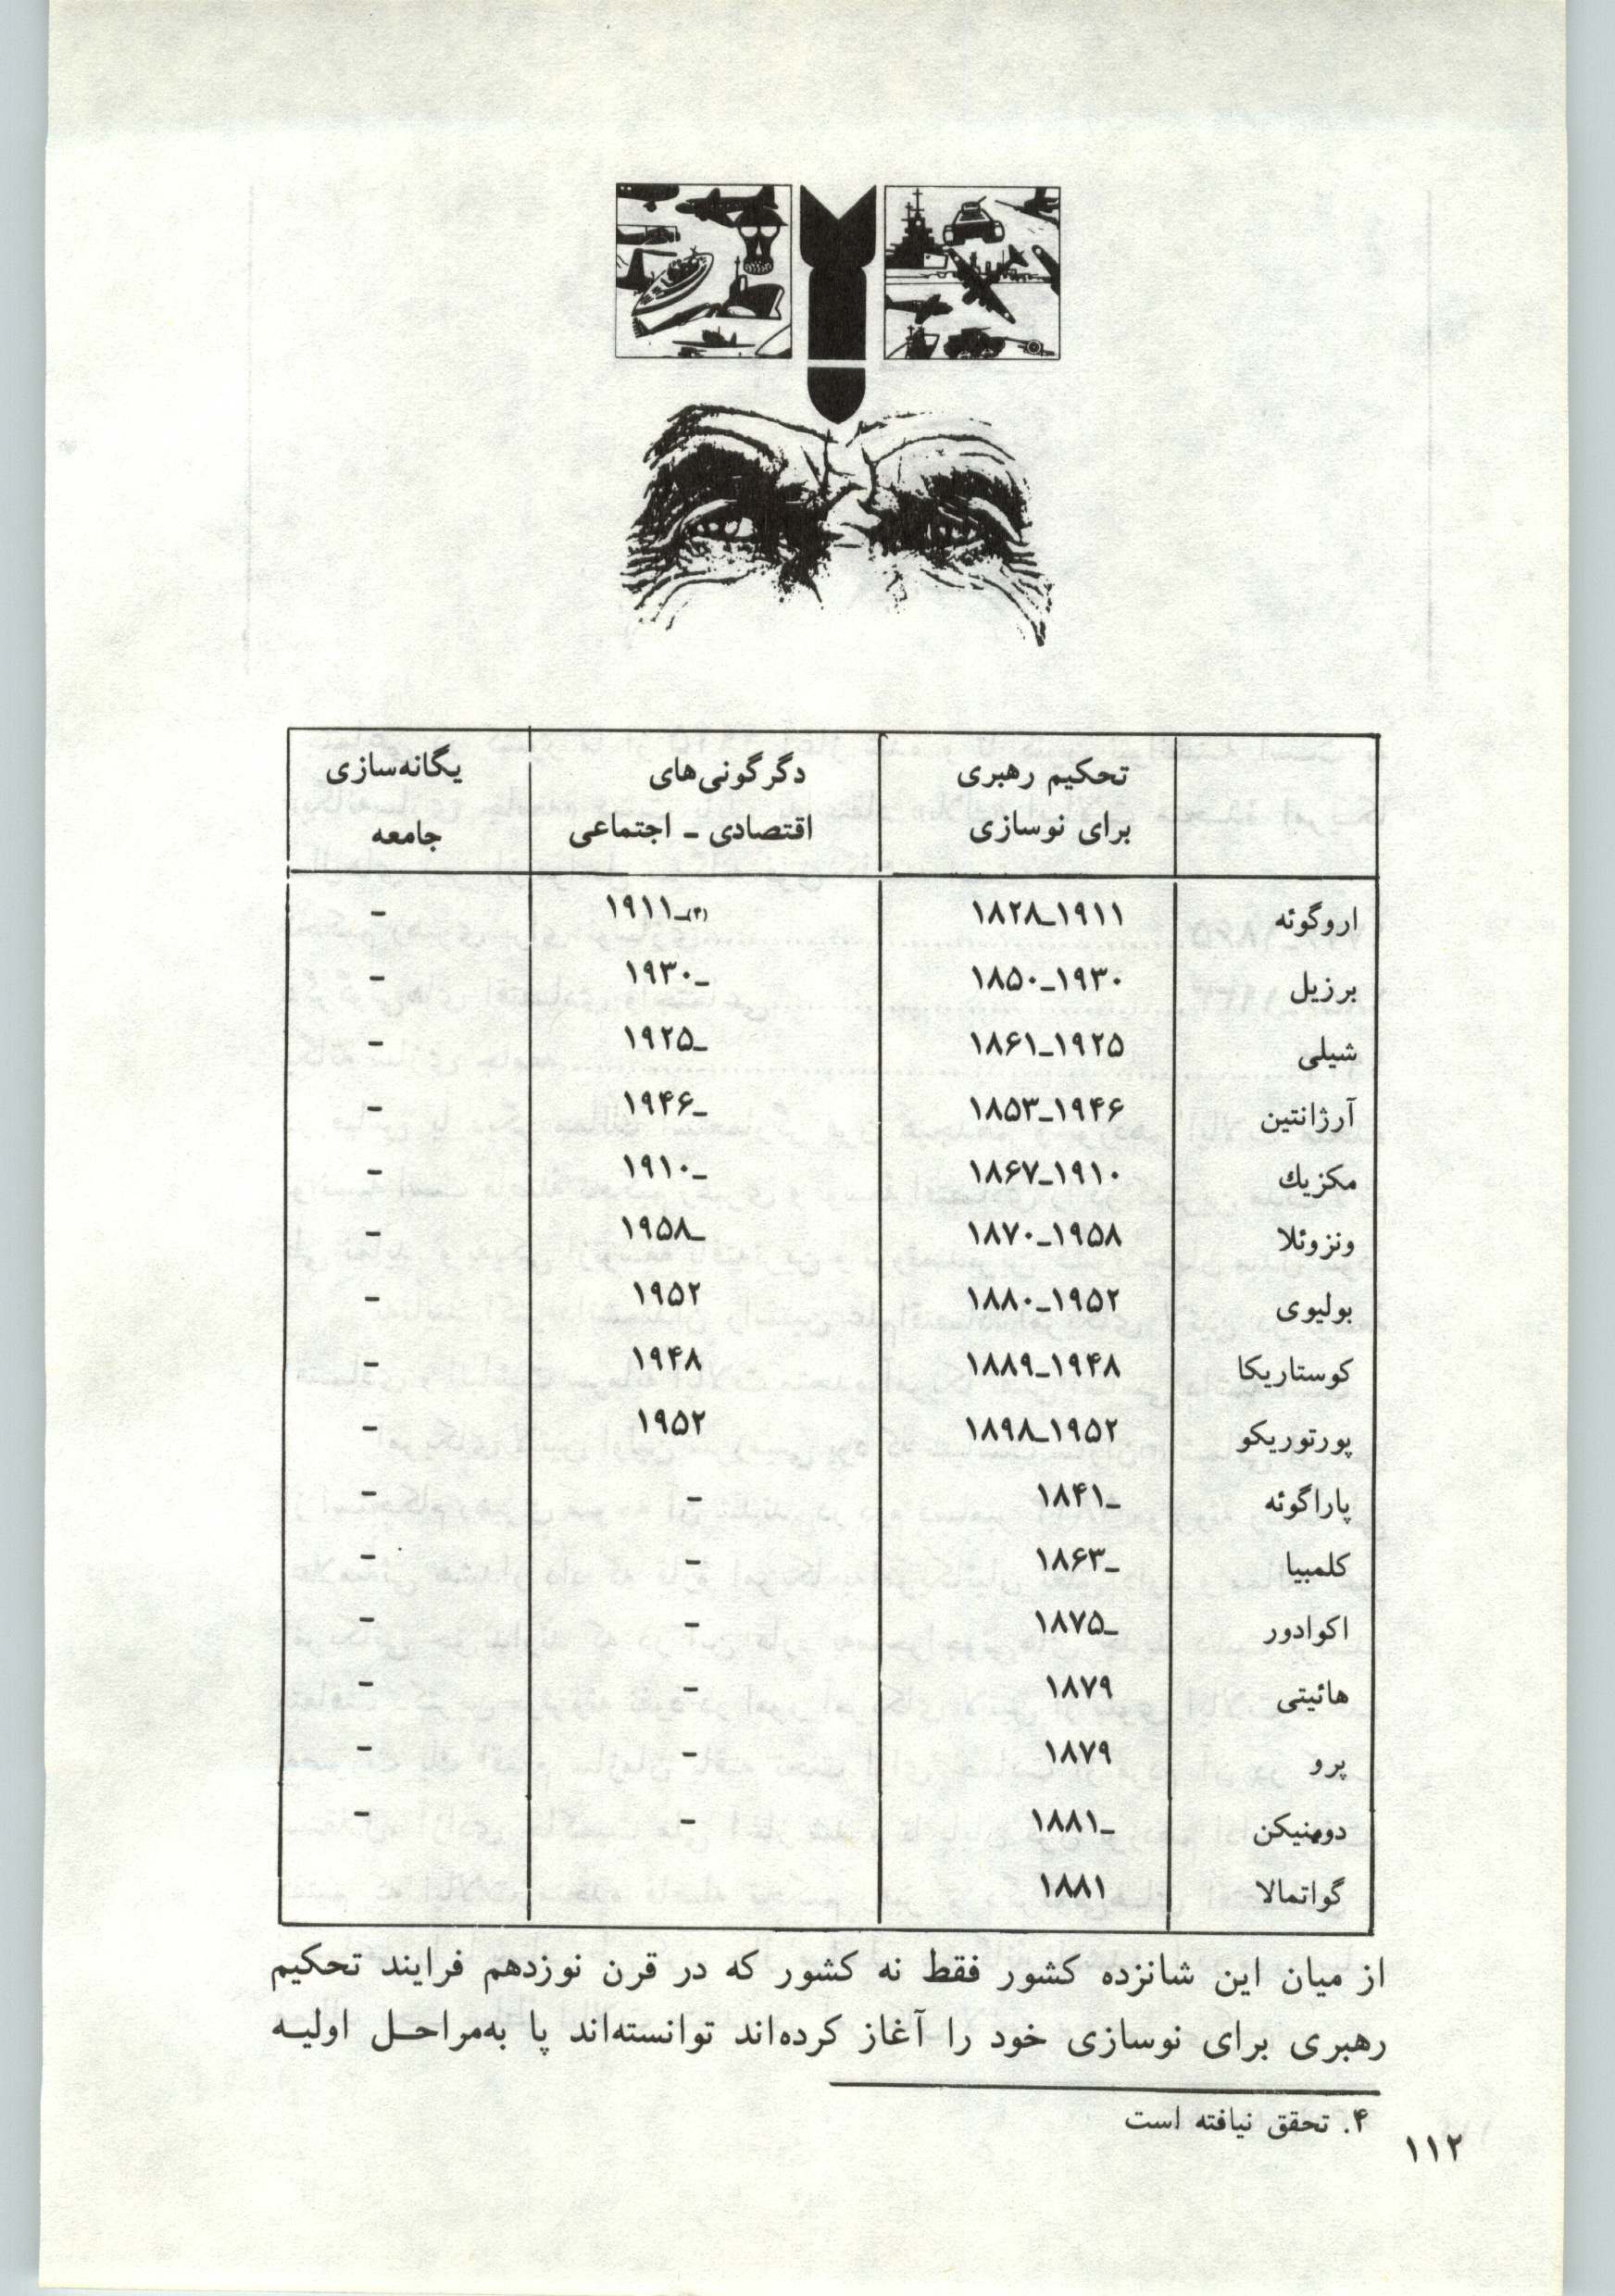 تحکیم رهبری دگرگونی‌های یگانه‌سازی
برای نوسازی اقتصادی ـ اجتماعی جامعه
اروگوئه ۱۸۲۸ـ۱۹۱۱ ۱۹۱۱ـ(۴) –
برزیل ۱۸۵۰ـ۱۹۳۰ ۱۹۳۰ـ –
شیلی ۱۸۶۱ـ۱۹۲۵ ۱۹۲۵ـ –
آرژانتین ۱۸۵۳ـ۱۹۴۶ ۱۹۴۶ـ –
مکزیك ۱۸۶۷ـ۱۹۱۰ ۱۹۱۰ـ –
ونزوئلا ۱۸۷۰ـ۱۹۵۸ ۱۹۵۸ـ –
بولیوی ۱۸۸۰ـ۱۹۵۲ ۱۹۵۲ –
کوستاریکا ۱۸۸۹ـ۱۹۴۸ ۱۹۴۸ –
پورتوریکو ۱۸۹۸ـ۱۹۵۲ ۱۹۵۲ –
پاراگوئه ۱۸۴۱ـ – –
کلمبیا ۱۸۶۳ـ – –
اکوادور ۱۸۷۵ـ – –
هائیتی ۱۸۷۹ – –
پرو ۱۸۷۹ – –
دومنیکن ۱۸۸۱ـ – –
گواتمالا ۱۸۸۱
از میان این شانزده کشور فقط نه کشور که در قرن نوزدهم فرایند تحکیم
رهبری برای نوسازی خود را آغاز کرده‌اند توانسته‌اند پا به‌مراحل اولیه
۴. تحقق نیافته است
۱۱۲